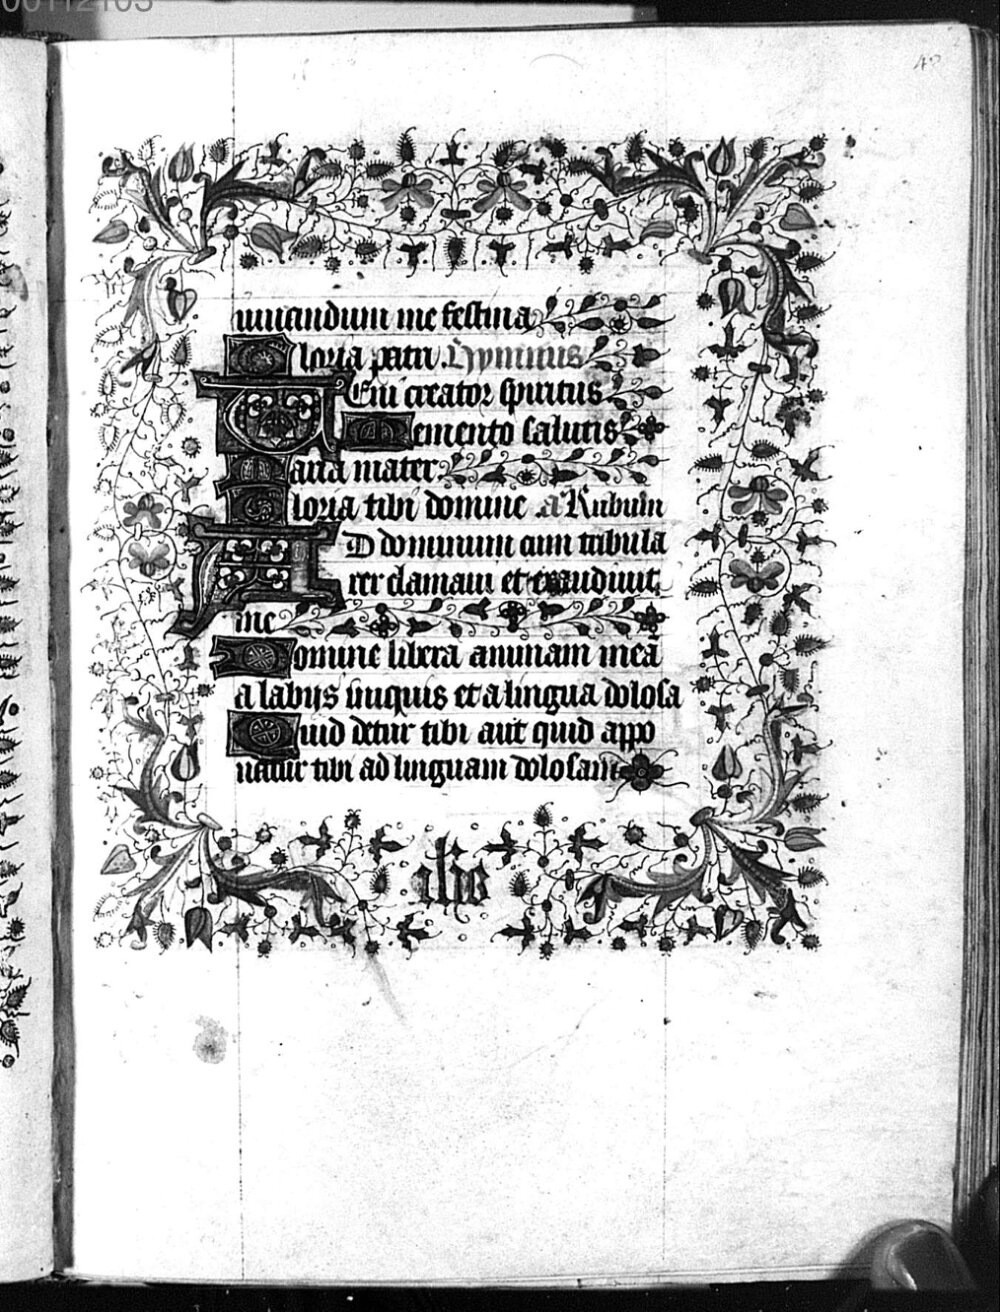 00112105
40
iuuandum me festina
Gloria patri. Hympnus
Veni creator spiritus
Memento salutis
Maria mater
Gloria tibi domine a Rubum
AD dominum cum tribula
rer clamaui et exaudiuit
me
Domine libera animam meã
a labijs iniquis et a lingua dolosa
Quid detur tibi aut quid appo
natur tibi ad linguam dolosam